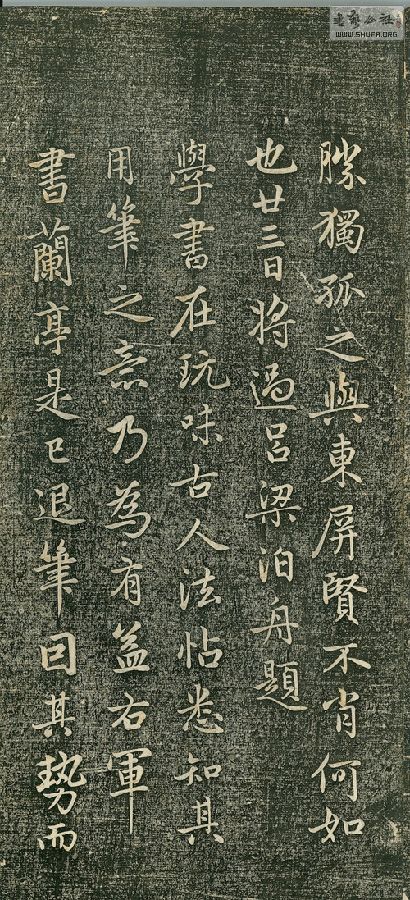 勝獨孤之與東屏賢不肖何如
也廿三日將過呂梁泊舟題
學書在玩味古人法帖悉知其
用筆之意乃為有益右軍
書蘭亭是已退筆因其勢而
WWW.SHUFA.ORG